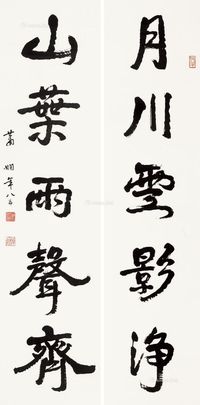 月川雲影淨
山葉雨聲齊
蕭嫻年八